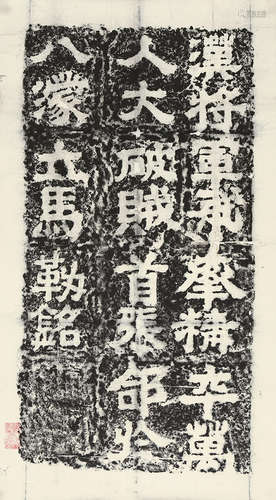 漢將軍飛率精卒萬
人大破賊首張郃於
八濛立馬勒銘